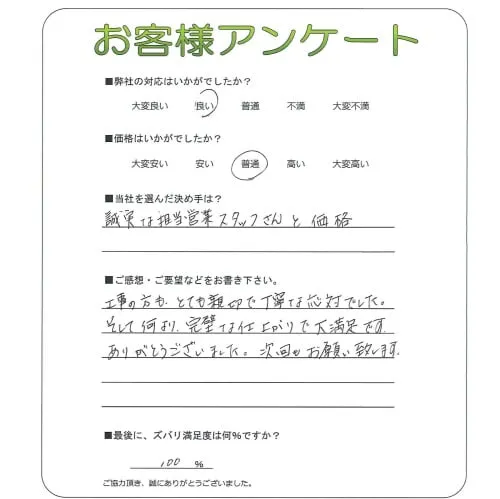 お客様アンケート
■弊社の対応はいかがでしたか?
大変良い 良い 普通 不満 大変不満
■価格はいかがでしたか?
大変安い 安い 普通 高い 大変高い
■当社を選んだ決め手は?
誠実な担当営業スタッフさんと価格
■ご感想・ご要望などをお書き下さい。
工事の方も、とても親切で丁寧な応対でした。
そして何より、完璧な仕上がりで大満足です。
ありがとうございました。次回もお願い致します。
■最後に、ズバリ満足度は何%ですか?
100 %
ご協力頂き、誠にありがとうございました。